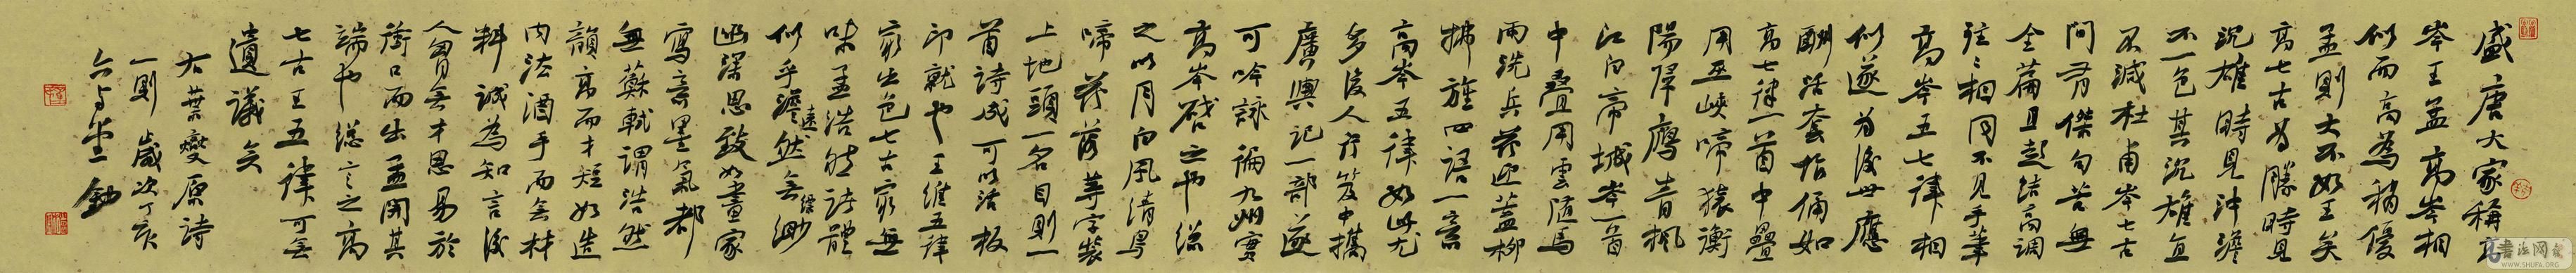 盛唐大家稱高
岑王孟高岑相
似而高為稍優
孟則大不如王矣
高七古為勝時見
沉雄時見沖澹
不一色其沉雄直
不減杜甫岑七古
間有傑句苦無
全篇且起結高調
往往相同不見手筆
高岑五七律相
似遂為後世應
酬活套作俑如
高七律一首中疊
用巫峽啼猿衡
陽歸雁青楓
江白帝城岑一首
中疊用雲隨馬
雨洗兵花迎蓋柳
拂旌四語一意
高岑五律如此尤
多後人行笈中攜
廣輿記一部遂
可吟詠徧九州實
高岑啟之也總
之以月白風清鳥
啼花落等字裝
上地頭一名目則一
首詩成可以活板
印就也王維五律
最出色七古最無
味孟浩然詩體
似乎澹遠然無縹緲
幽深思致如畫家
寫意墨氣都
無蘇軾謂浩然
韻高而才短如造
內法酒手而無材
料誠為知言後
人胸無才思易於
衝口而出孟開其
端也總言之高
七古王五律可無
遺議矣
右葉燮原詩
一則 歲次丁亥